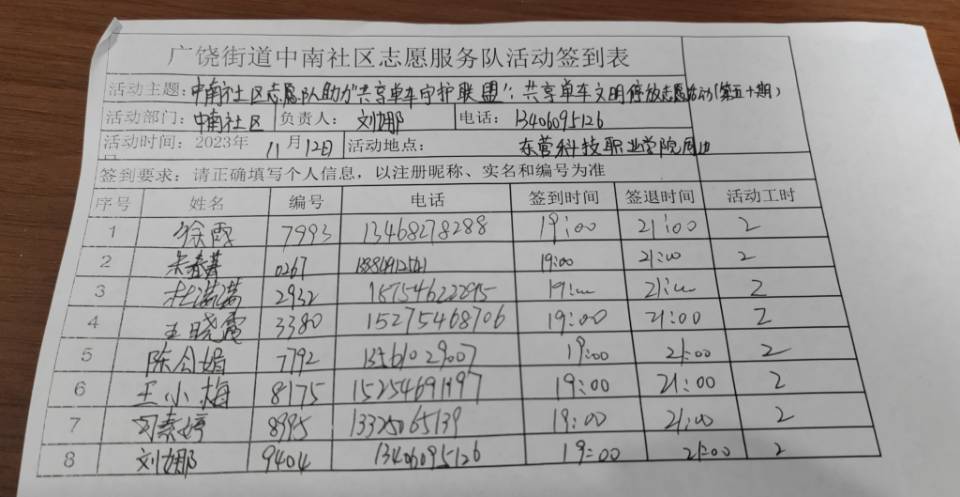 广饶街道中南社区志愿服务队活动签到表
活动主题：中南社区志愿队助力"共享单车守护联盟"：共享单车文明停放志愿活动（第五十期）
活动部门：中南社区 负责人：刘娜 电话：13406095126
活动时间：2023年 11月12日 活动地点： 东营科技职业学院周边
签到要求：请正确填写个人信息，以注册昵称、实名和编号为准
序号 姓名 编号 电话 签到时间 签退时间 活动工时
1 徐霞 7993 13468278288 19:00 21:00 2
2 0267 19:00 21:00 2
3 杜满满 2932 18754622895 19:00 21:00 2
4 王晓霞 3380 15275468706 19:00 21:00 2
5 陈会娟 7792 13561029007 19:00 21:00 2
6 王小梅 8175 15254691997 19:00 21:00 2
7 8995 13325065139 19:00 21:00 2
8 刘娜 9404 13406095126 19:00 21:00 2